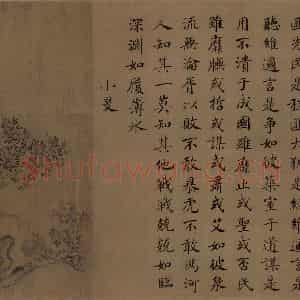 匪先民是程匪大猶是經維邇言是
聽維邇言是爭如彼築室于道謀是
用不潰于成國雖靡止或聖或否民
雖靡膴或哲或謀或肅或艾如彼泉
流無淪胥以敗不敢暴虎不敢馮河
人知其一莫知其他戰戰兢兢如臨
深淵如履薄冰
小旻
Shufawang.CN